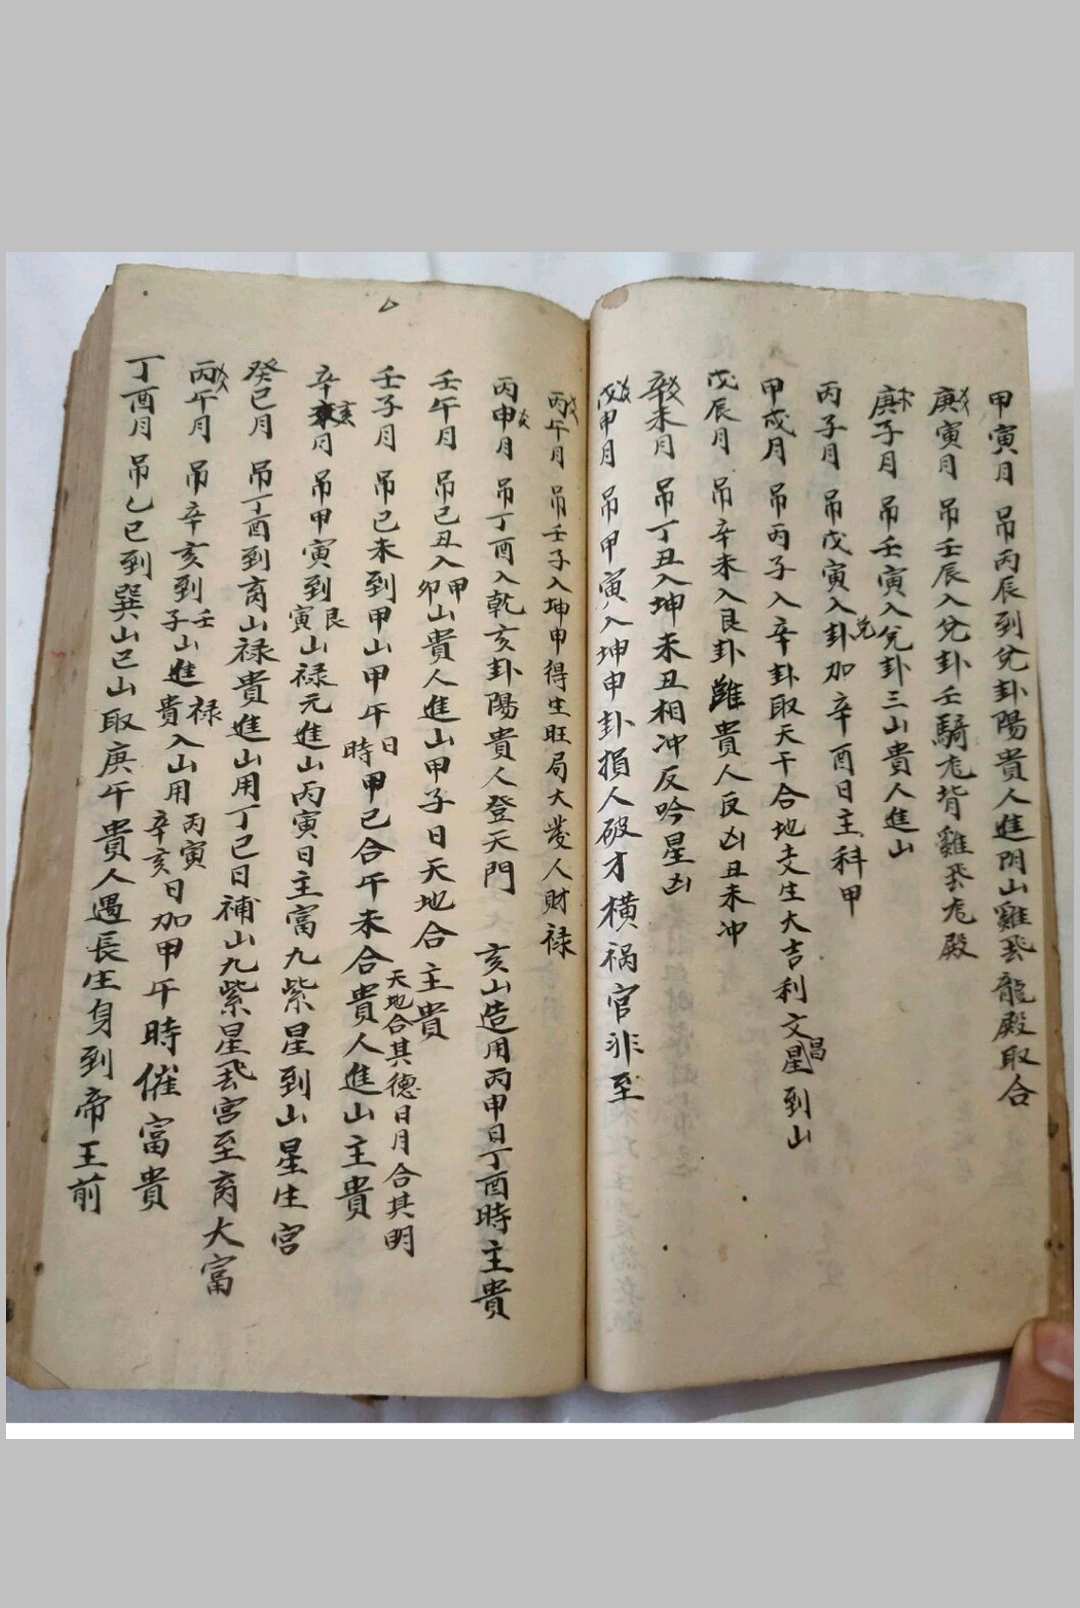 甲寅月 吊丙辰到兌卦陽貴人進閂山雞飛龍殿取合
庚寅月 吊壬辰入兌卦壬騎尨背雞飛尨殿
庚子月 吊壬寅入兌卦三山貴人進山
丙子月 吊戊寅入兌卦加辛酉日主科甲
甲戌月 吊丙子入辛卦取天干合地支生大吉利文昌星到山
戊辰月 吊辛未入艮卦雖貴人反凶丑未冲
辛未月 吊丁丑入坤未丑相冲反吟星凶
戊申月 吊甲寅入坤申卦損人破才橫禍官非至
丙午月 吊壬子入坤申得生旺局大發人財禄
丙申月 吊丁酉入乾亥卦陽貴人登天門 亥山造用丙申日丁酉時主貴
壬午月 吊己丑入甲卯山貴人進山甲子日天地合主貴
天地合其德日月合其明
壬子月 吊己未到甲山甲午日時甲己合午未合貴人進山主貴
辛亥月 吊甲寅到艮寅山禄元進山丙寅日主富九紫星到山星生宮
癸巳月 吊丁酉到离山禄貴進山用丁巳日補山九紫星飛宮至离大富
丙午月 吊辛亥到壬子山進禄貴入山用丙寅辛亥日加甲午時催富貴
丁酉月 吊乙巳到巽山巳山取庚午貴人遇長生身到帝王前